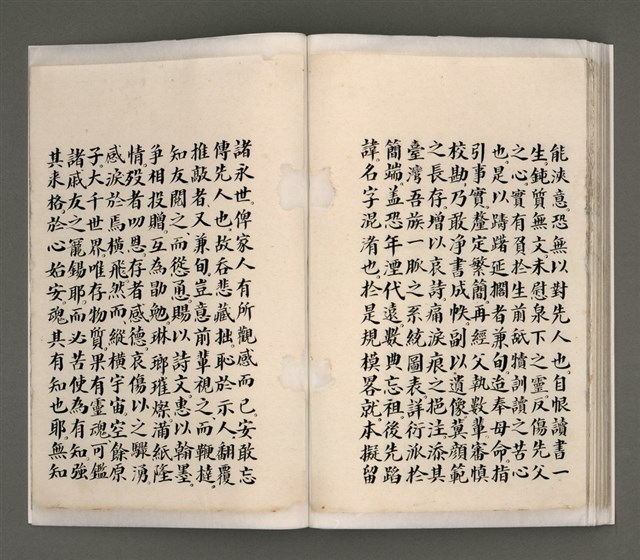 能浹意恐無以對先人也自恨讀書一
生鈍質無文未慰泉下之靈反傷先父
之心實有負於生前舐犢訓讀之苦心
也是以躊躇延擱者兼旬迨奉母命指
引事實釐定繁簡再經父執數輩審慎
校勘乃敢净書成帙副以遺像冀顏範
之長存增以哀詩痛淚痕之挹注添其
臺灣吾族一脈之系統圖表詳衍派於
簡端蓋恐年湮代遠數典忘祖後先蹈
諱名字混淆也於是規模畧就本擬留
諸永世俾家人有所觀感而已安敢忘
傳先人也故吞悲藏拙恥於示人翻覆
推敲者又兼旬豈意前輩視之而鞭撻
知友闕之而慫恿賜以詩文惠以翰墨
爭相投贈互為勖勉琳瑯璀燦滿紙隆
情歿者叨恩存者感德哀傷以之驟湧
感淚於馬橫飛然而縱橫宇宙空餘原
子大千世界唯存物質果有靈魂可鑑
諸戚友之寵錫耶而必苦使為有知強
其来格於心始安魂其有知也耶無知